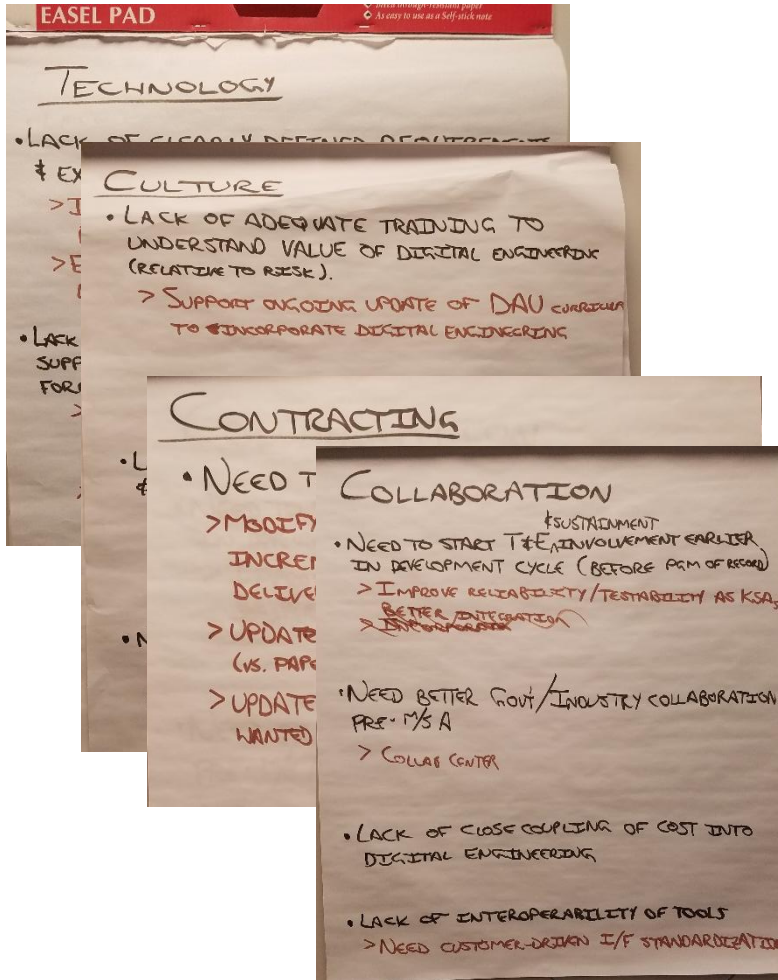 EASEL PAD
As easy to use as a Self-stick note
TECHNOLOGY
• LACK OF CLEARLY DEFINED REQUIREMENTS
& EX
> I
> E
• LACK
SUPP
FOR
>
CULTURE
• LACK OF ADEQUATE TRAINING TO
UNDERSTAND VALUE OF DIGITAL ENGINEERING
(RELATIVE TO RISK).
> SUPPORT ONGOING UPDATE OF DAU CURRICULA
TO INCORPORATE DIGITAL ENGINEERING
• L
&
• N
CONTRACTING
• NEED T
> MODIFY
INCREM
DELIVE
> UPDATE
(VS. PAPE
> UPDATE
WANTED
COLLABORATION
& SUSTAINMENT
• NEED TO START T&E ^ INVOLVEMENT EARLIER
IN DEVELOPMENT CYCLE (BEFORE PGM OF RECORD)
> IMPROVE RELIABILITY/TESTABILITY AS KSA,
BETTER INTEGRATION
> INCORPORATE
• NEED BETTER GOVT/INDUSTRY COLLABORATION
PRE-M/S A
> COLLAB CENTER
• LACK OF CLOSE COUPLING OF COST INTO
DIGITAL ENGINEERING
• LACK OF INTEROPERABILITY OF TOOLS
> NEED CUSTOMER-DRIVEN I/F STANDARDIZATION